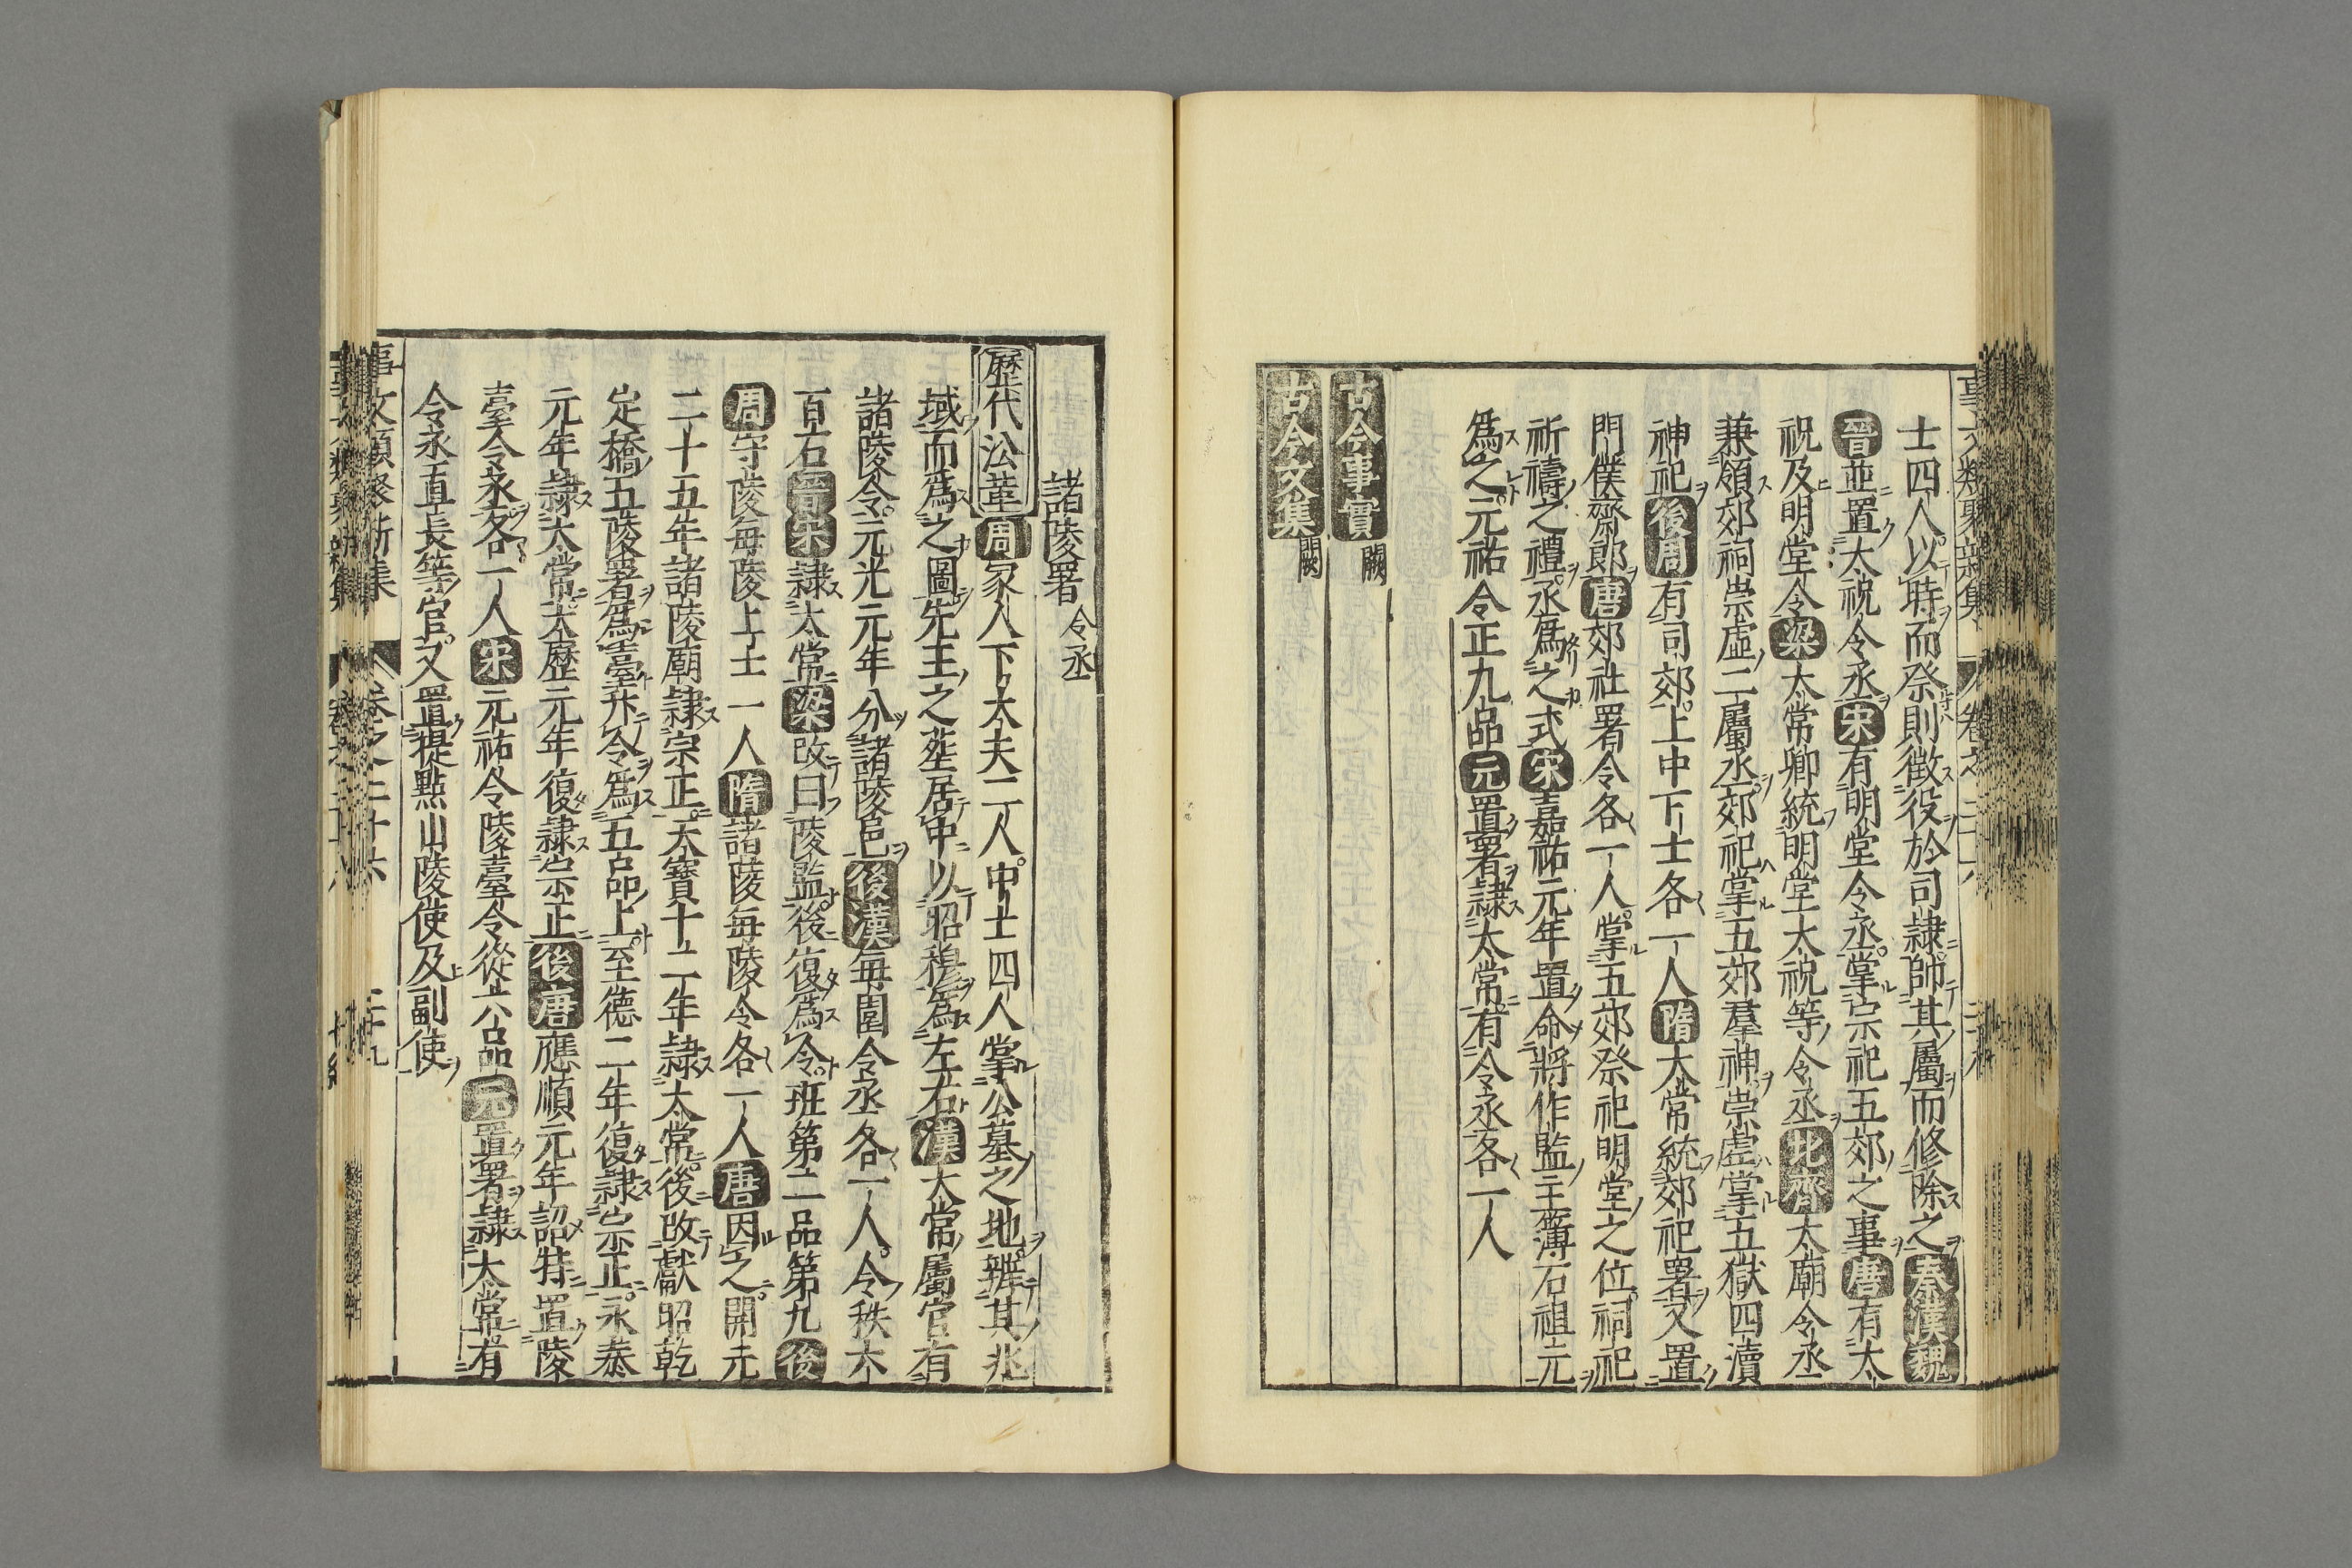 士四人以時而祭則徵役於司隷師其屬而修除之秦漢魏
晉並置太祝令丞宋有明堂令丞掌宗祀五郊之事唐有太
祝及明堂令梁太常卿統明堂太祝等令丞北齊太廟令丞
兼領郊祠崇虛二屬丞郊祀掌五郊羣神崇虛掌五嶽四瀆
神祀後周有司郊上中下士各一人隋太常統郊祀署又置
門僕齋郎唐郊社署令各一人掌五郊祭祀明堂之位祠祀
祈禱之禮丞爲之式宋嘉祐元年置命將作監主簿石祖元
爲之元祐令正九品元置署隷太常有令丞各一人
古今事實闕
古今文集闕
諸陵署令丞
歷代沿革周家人下大夫二人中士四人掌公墓之地辨其兆
域而爲之圖先王之葬居中以昭穆爲左右漢太常屬官有
諸陵令元光元年分諸陵邑後漢每園令丞各一人令秩六
百石晉宋隷太常梁改曰陵監後復爲令班第二品第九後
周守陵每陵上士一人隋諸陵每陵令各一人唐因之開元
二十五年諸陵廟隷宗正天寶十二年隷太常後改獻昭乾
定橋五陵署爲臺升令爲五品上至德二年復隷宗正永泰
元年隷太常大歷元年復隷宗正後唐應順元年詔特置陵
臺令丞各一人宋元祐令陵臺令從六品元置署隷太常有
令丞直長等官又置提點山陵使及副使
事文類聚新集 卷之二十六 二十九